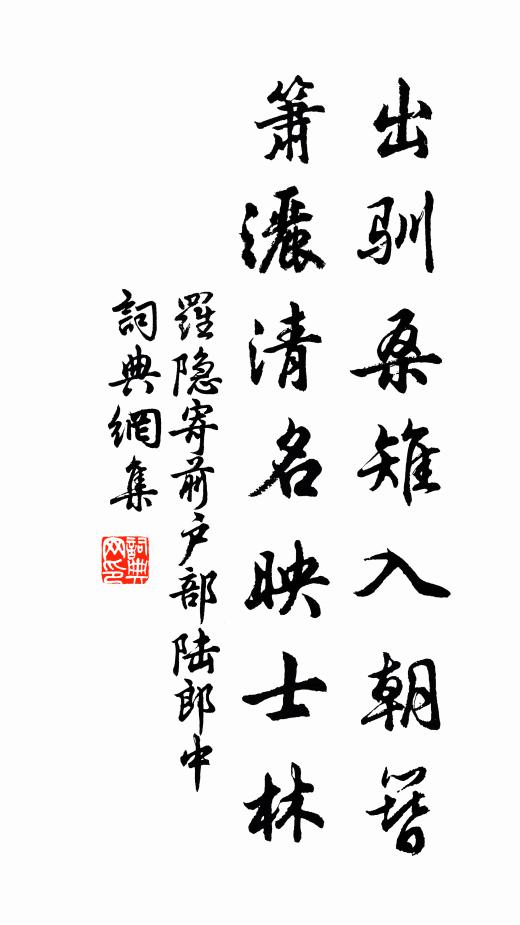 出驯桑雉入朝簪
箫灑清名映士林
羅隐寄前户部陆郎中
詞典網集
詞典网印